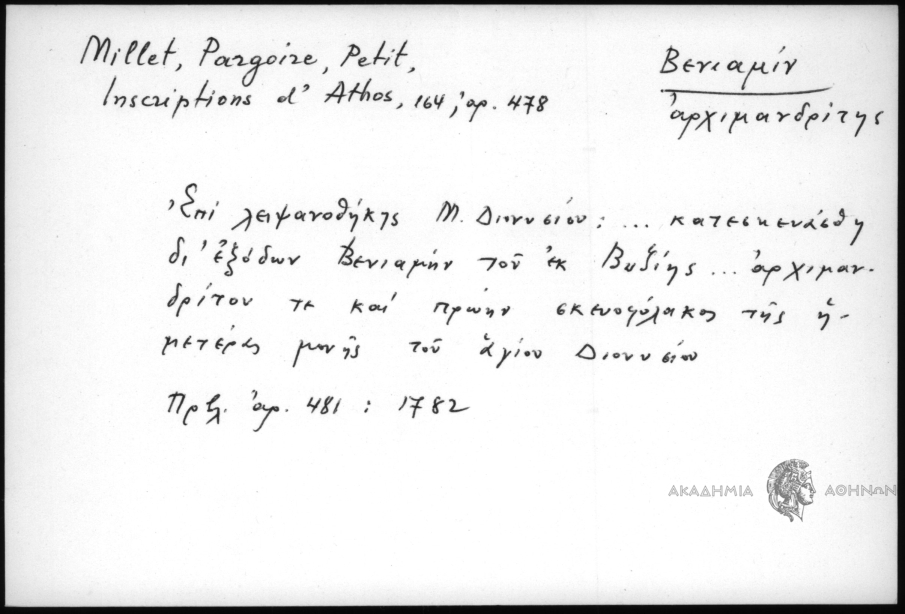 Millet, Pargoire, Petit,
Inscriptions d' Athos, 164, ἀρ. 478
Βενιαμίν
ἀρχιμανδρίτης
Ἐπί λειψανοθήκης Μ. Διονυσίου: ... κατεσκευάσθη
δι' ἐξόδων Βενιαμήν τοῦ ἐκ Βυζίης ... ἀρχιμαν-
δρίτου τε καί πρώην σκευοφύλακος τῆς ἡ-
μετέρας μονῆς τοῦ ἁγίου Διονυσίου
Πρβλ. ἀρ. 481 : 1782
ΑΚΑΔΗΜΙΑ ΑΘΗΝΩΝ